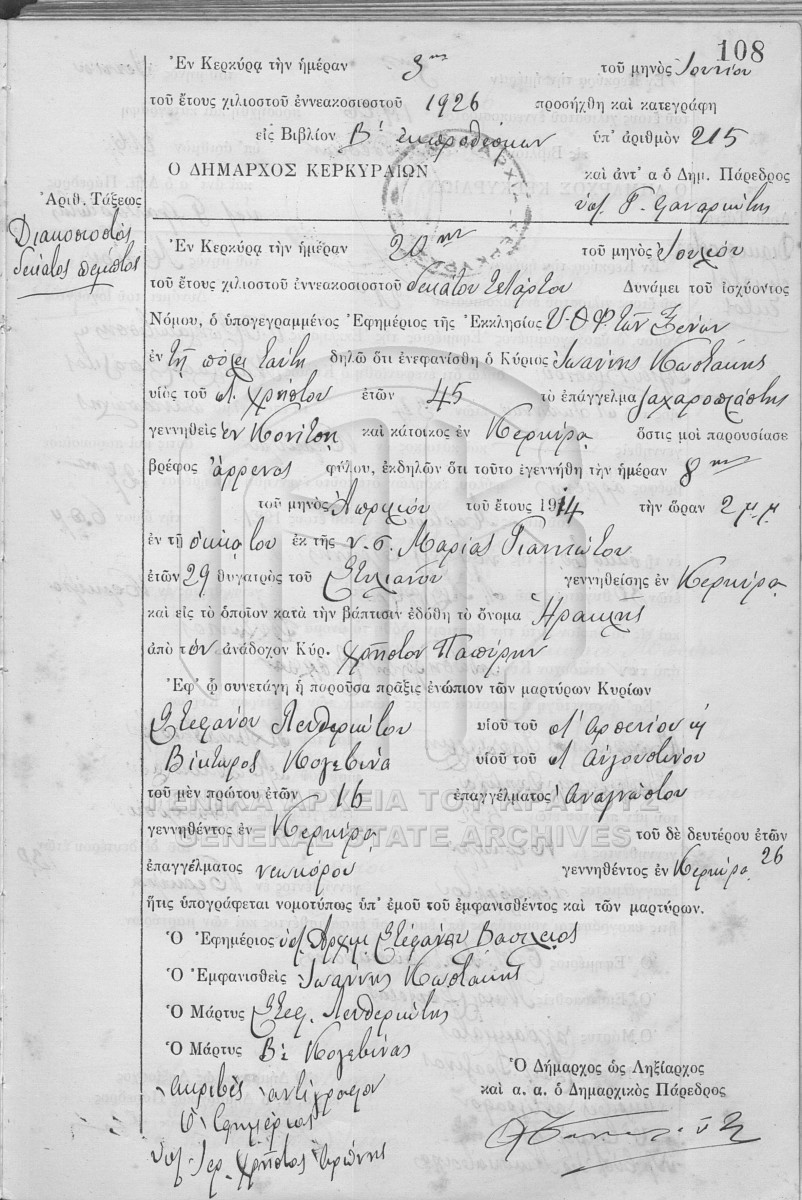 108
Ἐν Κερκύρᾳ τὴν ἡμέραν 3ην τοῦ μηνὸς Ἰουνίου
τοῦ ἔτους χιλιοστοῦ ἐννεακοσιοστοῦ 1926 προσήχθη καὶ κατεγράφη
εἰς Βιβλίον Β! ἐκπροθέσμων ὑπ' ἀριθμὸν 215
Ο ΔΗΜΑΡΧΟΣ ΚΕΡΚΥΡΑΙΩΝ καὶ ἀντ' α ὁ Δημ. Πάρεδρος
ὑπ. Γ.
Ἀριθ. Τάξεως
Διακοσιοστὸς
δέκατος πέμπτος
Ἐν Κερκύρᾳ τὴν ἡμέραν 20ην τοῦ μηνὸς Ἰουλίου
τοῦ ἔτους χιλιοστοῦ ἐννεακοσιοστοῦ δεκάτου τετάρτου Δυνάμει τοῦ ἰσχύοντος
Νόμου, ὁ ὑπογεγραμμένος Ἐφημέριος τῆς Ἐκκλησίας Υ.Θ. τῶν Ξένων
ἐν τῇ πόλει ταύτῃ δηλῶ ὅτι ἐνεφανίσθη ὁ Κύριος Ἰωάννης Κωστάκης
υἱὸς τοῦ Χρήστου ἐτῶν 45 τὸ ἐπάγγελμα ζαχαροπλάστης
γεννηθεὶς ἐν Κονίτσῃ καὶ κάτοικος ἐν Κερκύρᾳ ὅστις μοὶ παρουσίασε
βρέφος ἄρρενος φύλου, ἐκδηλῶν ὅτι τοῦτο ἐγεννήθη τὴν ἡμέραν 8ην
τοῦ μηνὸς Ἀπριλίου τοῦ ἔτους 1914 τὴν ὥραν 2 μ.μ.
ἐν τῇ οἰκίᾳ του ἐκ τῆς ν. σ. Μαρίας Γιαννιώτου
ἐτῶν 29 θυγατρὸς τοῦ Στυλιανοῦ γεννηθείσης ἐν Κερκύρᾳ
καὶ εἰς τὸ ὁποῖον κατὰ τὴν βάπτισιν ἐδόθη τὸ ὄνομα Ἡρακλῆς
ἀπὸ τὸν ἀνάδοχον Κύρ. Χρῆστον
Ἐφ' ᾧ συνετάγη ἡ παροῦσα πρᾶξις ἐνώπιον τῶν μαρτύρων Κυρίων
Στεφάνου Λευθεριώτου υἱοῦ τοῦ Ἀρσενίου ϗ
Βίκτωρος Κογεβίνα υἱοῦ τοῦ Αὐγουστίνου
τοῦ μὲν πρώτου ἐτῶν 16 ἐπαγγέλματος Ἀναγνώστου
ΓΕΝΙΚΑ ΑΡΧΕΙΑ ΤΟΥ ΚΡΑΤΟΥΣ
GENERAL STATE ARCHIVES
γεννηθέντος ἐν Κερκύρᾳ τοῦ δὲ δευτέρου ἐτῶν 26
ἐπαγγέλματος νεωκόρου γεννηθέντος ἐν Κερκύρᾳ
ἥτις ὑπογράφεται νομοτύπως ὑπ' ἐμοῦ τοῦ ἐμφανισθέντος καὶ τῶν μαρτύρων.
Ὁ Ἐφημέριος ὑπ. Ἀρχιμ. Στεφάνου Βασίλειος
Ὁ Ἐμφανισθεὶς Ἰωάννης Κωστάκης
Ὁ Μάρτυς Στεφ. Λευθεριώτης
Ὁ Μάρτυς Β. Κογεβίνας
Ἀκριβὲς ἀντίγραφον
Ὁ Ἐφημέριος
ὑπ. Ἱερ. Χρῆστος
Ὁ Δήμαρχος ὡς Ληξίαρχος
καὶ α. α. ὁ Δημαρχικὸς Πάρεδρος